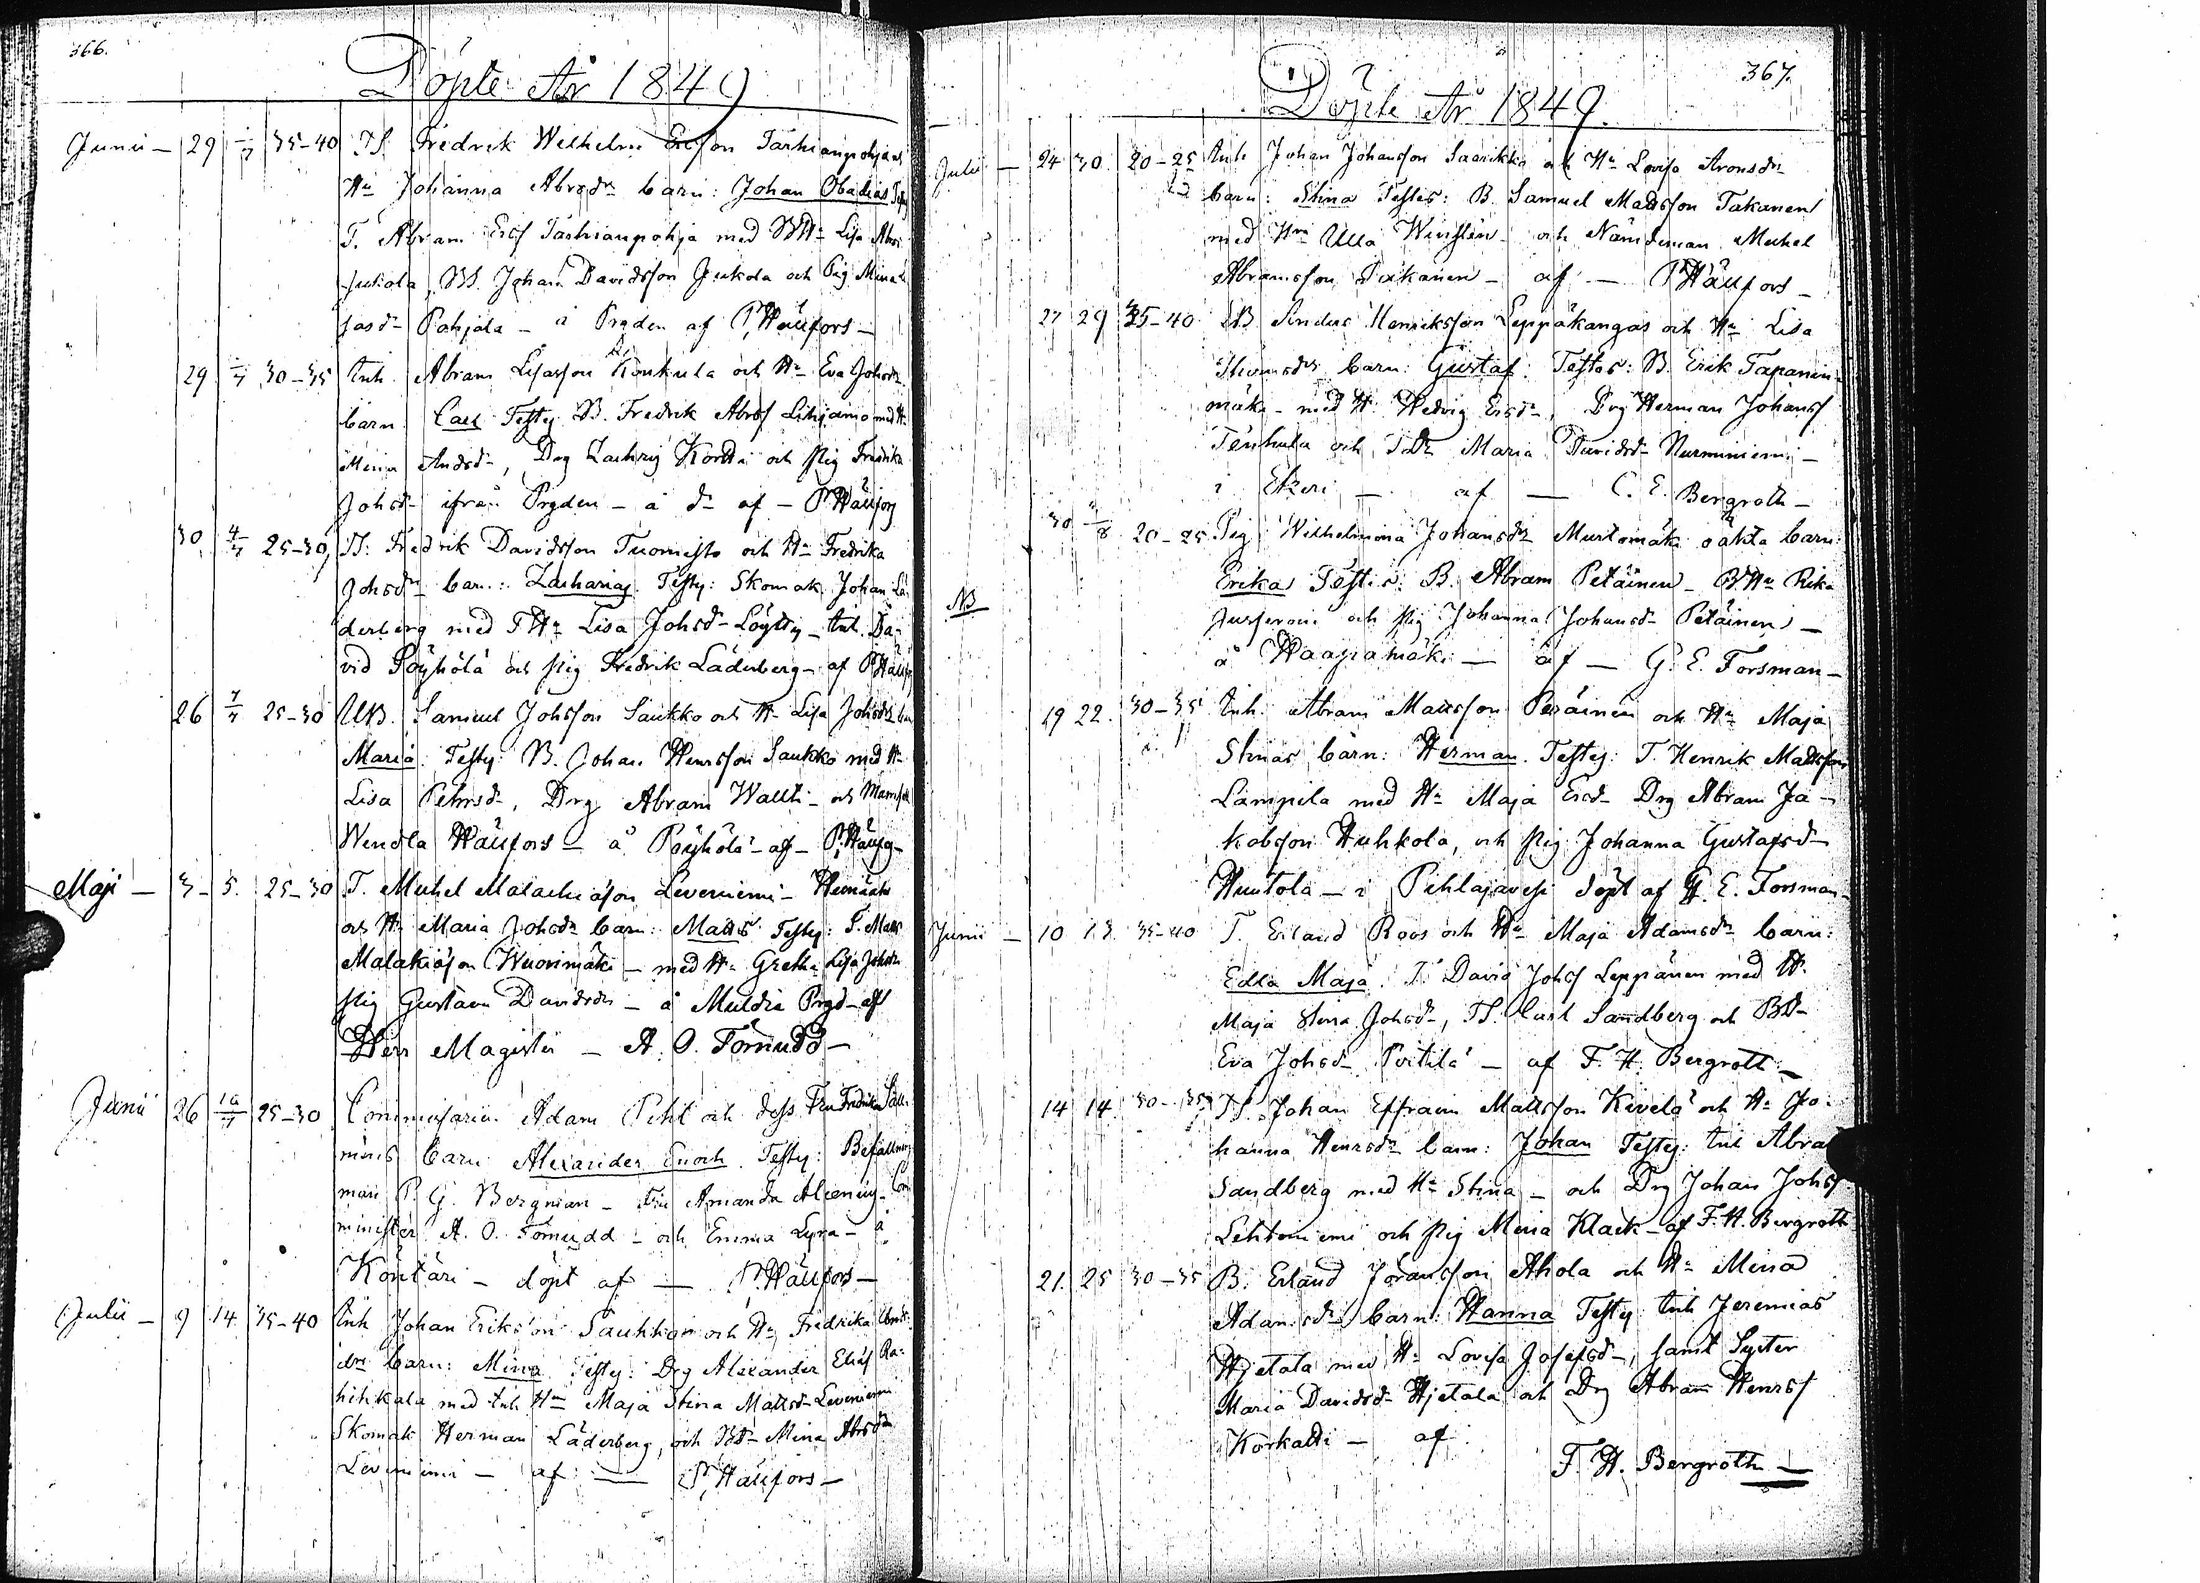 366.
Döpte År 1849
Junii — 29 1/7 35–40 TS. Fredrik Wilhelm Ericsson Tarhianpohja
Hu Johanna Abrsdr barn: Johan Obadias Testes
T. Abram Ericss Tarhianpohja med BHu Lisa Abrs
Jukola, BS. Johan Davidsson Jukola och Pig Mina
Jasdr Pohjala — i Prgden af P. Hällfors —
29 1/7 30–35 Inh. Abram Lisasson Konkula och Hu Eva Johsdr
barn Carl Testes B. Fredrik Abrss Lihjamo med Hu
Mina Andsdr, Drg Zachris Kortti och Pig Fredrika
Johsdr ifrån Prgden — å do af — P. Hällfors
30, 4/7 25–30, TS. Fredrik Davidsson Tuomisto och Hu Fredrika
Johsdr barn: Zacharias. Testes: Skomak. Johan Lä
derberg med THu Lisa Johsdr Löytty — Inh. Da-
vid Pöyhölä och Pig Fredrik Läderberg — af P. Hällfors
26 7/7 25–30 UB. Samuel Johsson Saukko och Hu Lisa Johsdr barn
Maria. Testes: B. Johan Henrsson Saukko med Hu
Lisa Pehrsdr, Drg Abram Wallti — och Mamsell
Wendla Hällfors — å Pöyhölä — af — P. Hällfors
Maji — 3 – 5. 25–30 T. Michel Malachiasson Leveniemi —
och Hu Maria Johsdr barn: Matts Testes: T. Matts
Malakiasson Wuorimäki — med Hu Gretha Lisa Johsdr
Pig Gustava Davidsdr — å Muldia Prgd — af
Herr Magister — A. O. Törnudd —
Junii 26 10/7 25–30 Commissarien Adam Piht och dess Fru Fredrika Säll
mans barn Alexander Enoch. Testes: Befallnings
man P. G. Bergman — Fru Amanda Alcenius — Com
minister A. O. Törnudd — och Emma Lyra — å
Kontäri — döpt af — P. Hällfors —
Julii — 9 14. 35–40 Inh Johan Eriksson Saukkon och Hu Fredrika
dr barn: Mina Testes: Drg Alexander Eliass Ra-
hihkala med Inh. Hu Maja Stina Mattsdr Leveniemi
Skomak Herman Läderberg, och BD Mina Abrsdr
Leveniemi — af — P. Hällfors —
367.
Döpte År 1849.
Julii — 24 30. 20–25 Inh Johan Johansson Saarikko och Hu Lovisa Aronsdr
barn: Stina Testes: B. Samuel Mattsson Takanen
med Hu Ulla Winsten och Nämdeman Michel
Abramsson Takanen — af — P. Hällfors —
27 29 35–40 B Anders Henriksson Leppäkangas och Hu Lisa
Thomsdr barn: Gustaf. Testes: B. Erik Tapanin
mäki — med H. Hedvig Ersdr, Drg Herman Johanss
Tenhula och TDr Maria Davidsdr Nurminiemi —
i Etzeri — af — C. E. Bergroth —
NB 30 2/8 20–25 Pig Wilhelmina Johansdr Murtomäki oäkta barn:
Erika Testes: B. Abram Petäinen — BHu Rika
och Pig Johanna Johansdr Petäinen —
å Haapamäki — af — G. E. Forsman —
19 22. 30–35 Inh. Abram Mattsson Peräinen och Hu Maja
Stinas barn: Herman. Testes: T. Henrik Mattsson
Lampila med Hu Maja Ersdr Drg Abram Ja-
kobsson Huhkola, och Pig Johanna Gustafsdr
Huutola — i Pihlajavesi döpt af G. E. Forsman —
Junii — 10 13. 35–40 T. Erland Roos och Hu Maja Adamsdr barn:
Edla Maja. T. David Johss Leppänen med H.
Maja Stina Johsdr, TS. Carl Sandberg och BD
Eva Johsdr Potila — af F. H. Bergroth —
14 14. 30–35 TS. Johan Effraim Mattsson Kivelä och Hu Jo-
hanna Henrsdr barn: Johan Testes: Inh Abra
Sandberg med Hu Stina — och Drg Johan Johss
Lehtoniemi och Pig Mina Klack — af F. H. Bergroth
21. 25 30–35 B. Erland Jöransson Ahola och Hu Mina
Adamsdr barn: Hanna Testes Inh Jeremias
Hjetala med Hu Lovisa Josefsdr, samt Syster
Maria Davidsdr Hjetala och Drg Abram Henrss
Korkatti — af
F. H. Bergroth —